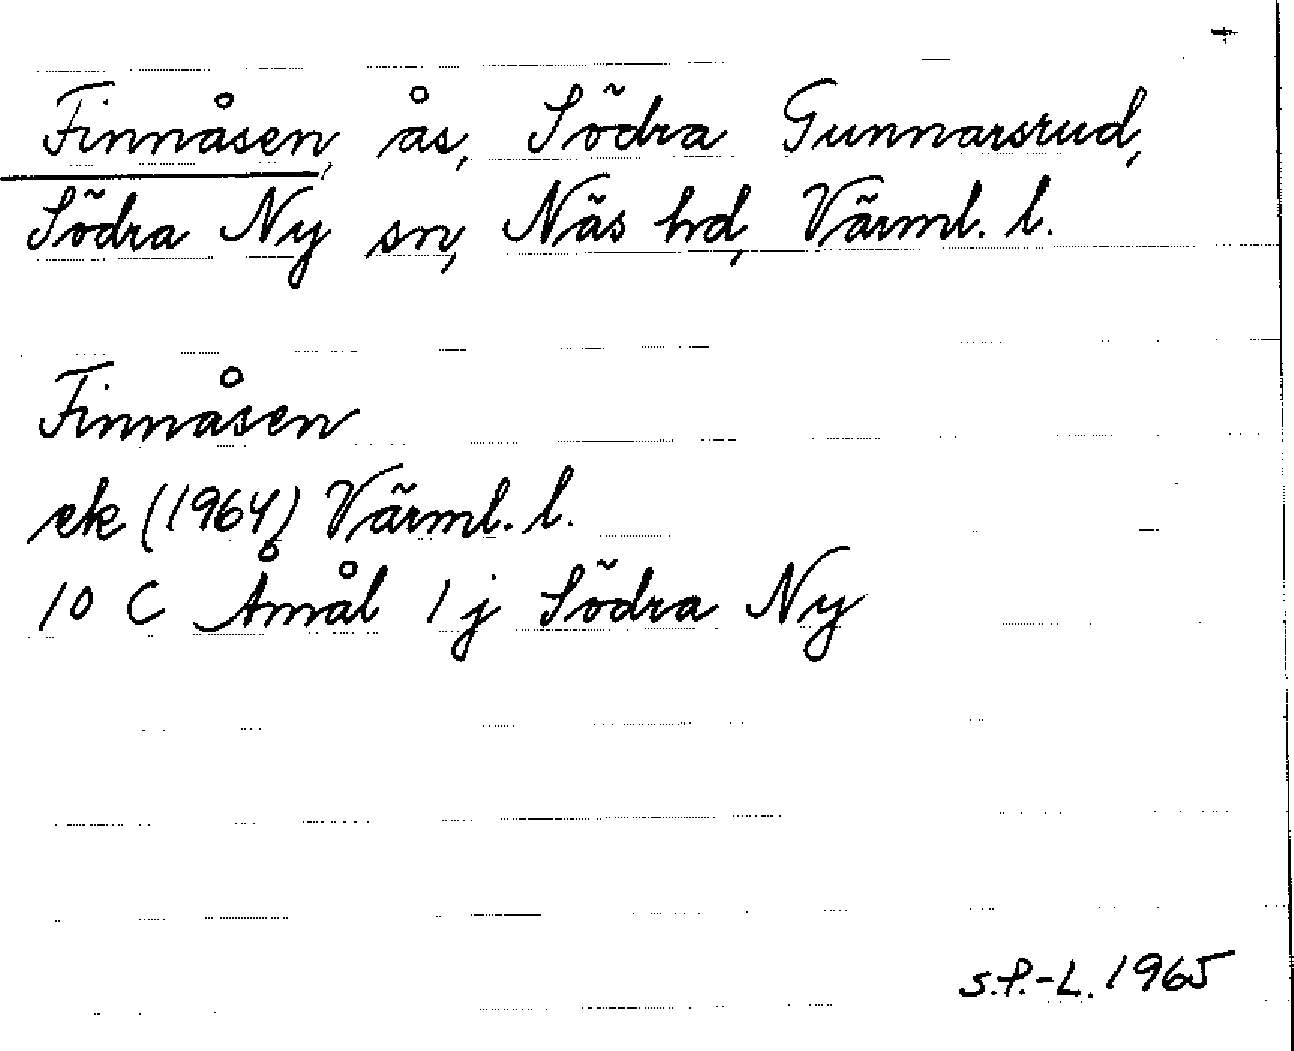 Finnåsen, ås, Södra Gunnarsrud,
Södra Ny sn, Näs hd, Värml. l.
Finnåsen
ek (1964) Värml. l.
10 C Åmål 1 j Södra Ny
S.P.-L. 1965